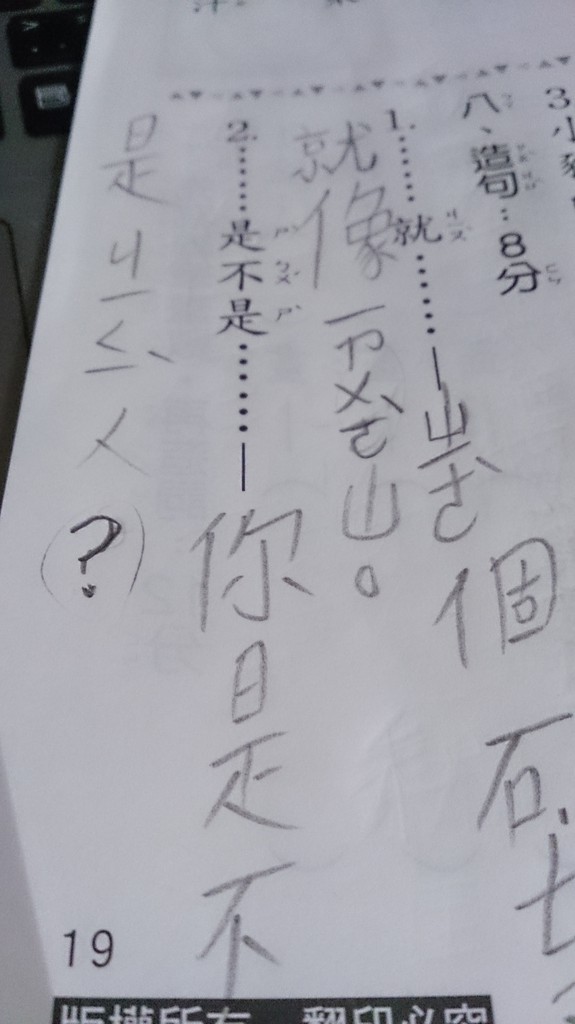 3.小
八、造句：8分
1.……就……—ㄓㄜˋ個石
就像一ㄗㄨㄛˋ山。
2.……是不是……—你是不
是ㄐㄧㄑㄧˋ人?
19
版權所有 翻印必究